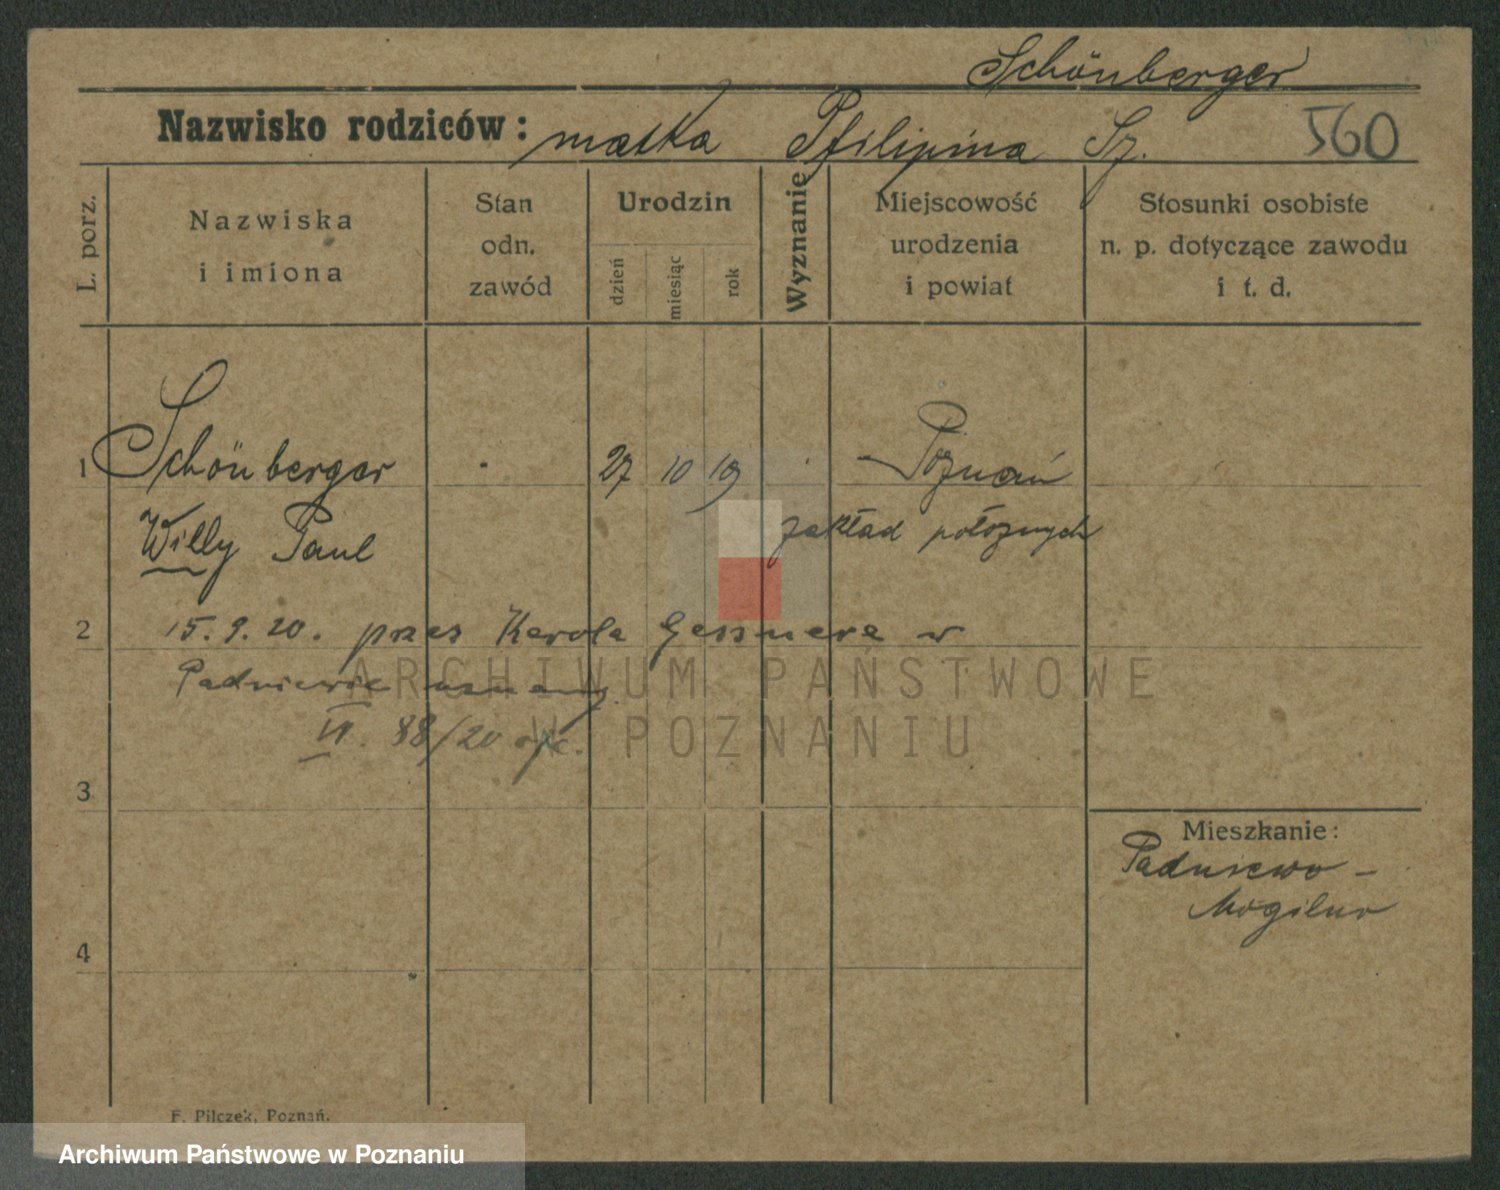 Schönberger
Nazwisko rodziców: matka Pfilipina Sz. 560
L. porz.
Nazwiska i imiona
Stan odn. zawód
Urodzin
dzień miesiąc rok
Wyznanie
Miejscowość urodzenia i powiat
Stosunki osobiste n. p. dotyczące zawodu i t. d.
1 Schönberger 27 10 19 Poznań
Willy Paul zakład położnych
2 15. 9. 20. przez Karola Gessnera w
Padniewie uznany
VI. 88/20
3
Mieszkanie:
Padniewo -
Mogilno
4
F. Pilczek, Poznań.
ARCHIWUM PAŃSTWOWE
W POZNANIU
Archiwum Państwowe w Poznaniu